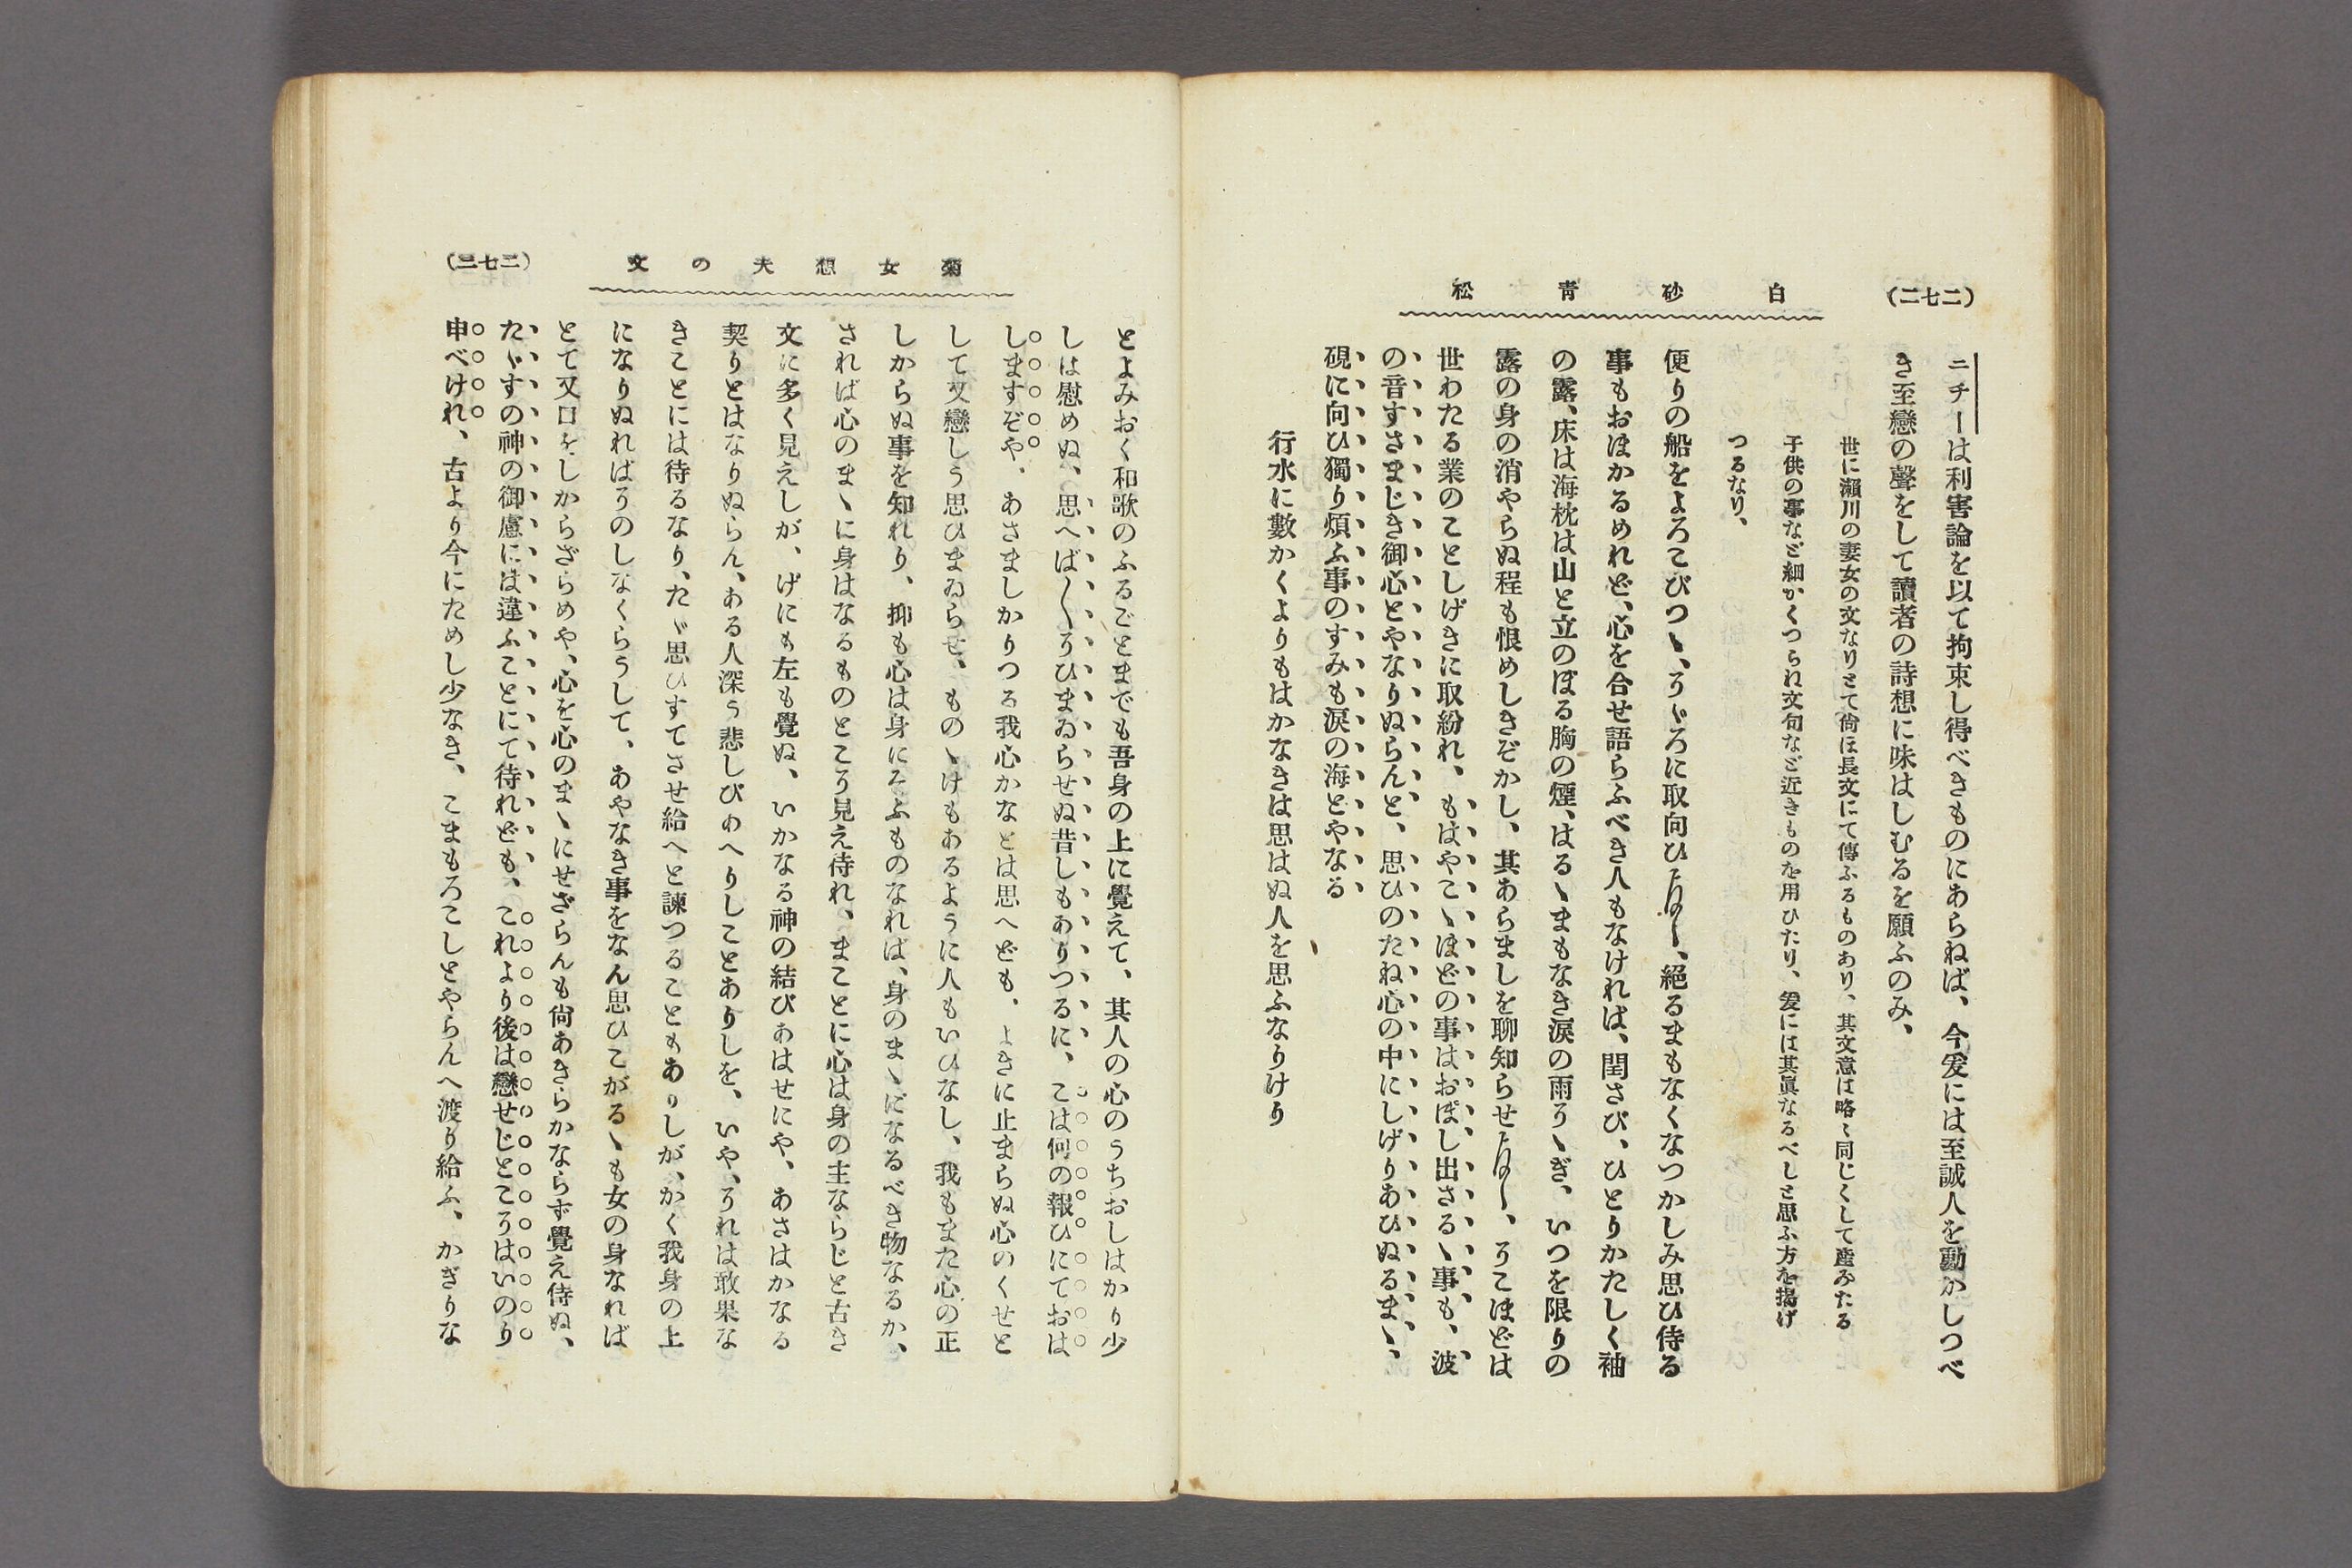 (二七二)
白砂青松
ニチーは利害論を以て拘束し得べきものにあらねば、今爰には至誠人を動かしつべ
き至戀の聲をして讀者の詩想に味はしむるを願ふのみ、
世に瀬川の妻女の文なりとて尙ほ長文にて傳ふるものあり、其文意は略〻同じくして產みたる
子供の事など細かくつられ文句など近きものを用ひたり、爰には其眞なるべしと思ふ方を揭げ
つるなり、
便りの船をよろこびつゝ、そゞろに取向ひ〳〵、絕るまもなくなつかしみ思ひ侍る
事もおほかるめれど、心を合せ語らふべき人もなければ、閨さび、ひとりかたしく袖
の露、床は海枕は山と立のぼる胸の煙、はるゝまもなき淚の雨そゝぎ、いつを限りの
露の身の消やらぬ程も恨めしきぞかし、其あらましを聊知らせ〳〵、そこほどは
世わたる業のことしげきに取紛れ、もはやこゝほどの事はおぼし出さるゝ事も、波
の音すさまじき御心とやなりぬらんと、思ひのたね心の中にしげりあひぬるまゝ、
硯に向ひ獨り煩ふ事のすみも淚の海とやなる
行水に數かくよりもはかなきは思はぬ人を思ふなりけり
菊女想夫の文
(二七三)
とよみおく和歌のふるごとまでも吾身の上に覺えて、其人の心のうちおしはかり少
しは慰めぬ、思へば〳〵そひまゐらせぬ昔しもありつるに、こは何の報ひにておは
しますぞや、あさましかりつる我心かなとは思へども、よきに止まらぬ心のくせと
して又戀しう思ひまゐらせ、ものゝけもあるように人もいひなし、我もまた心の正
しからぬ事を知れり、抑も心は身にそふものなれば、身のまゝになるべき物なるか、
されば心のまゝに身はなるものとこそ見え侍れ、まことに心は身の主ならじと古き
文に多く見えしが、げにも左も覺ぬ、いかなる神の結びあはせにや、あさはかなる
契りとはなりぬらん、ある人深う悲しびのへりしことありしを、いや、それは敢果な
きことには待るなり、たゞ思ひすてさせ給へと諫つることもありしが、かく我身の上
になりぬればそのしなくらうして、あやなき事をなん思ひこがるゝも女の身なれば
とて又口をしからざらめや、心を心のまゝにせざらんも尙あきらかならず覺え侍ぬ、
たゞすの神の御慮には違ふことにて待れども、これより後は戀せじとこそはいのり
申べけれ、古より今にためし少なき、こまもろこしとやらんへ渡り給ふ、かぎりな